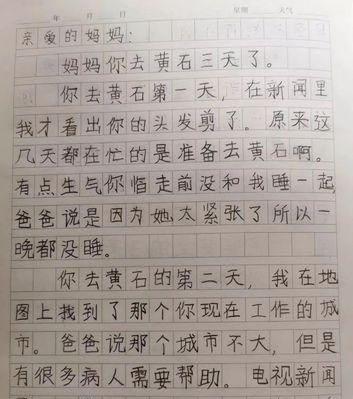 年 月 日 星期 天气
亲爱的妈妈:
妈妈你去黄石三天了。
你去黄石第一天，在新闻里
我才看出你的头发剪了。原来这
几天都在忙的是准备去黄石啊。
有点生气你临走前没和我睡一起,
爸爸说是因为她太紧张了所以一
晚都没睡。
你去黄石的第二天，我在地
图上找到了那个你现在工作的城
市。爸爸说那个城市不大，但是
有很多病人需要帮助。电视新闻